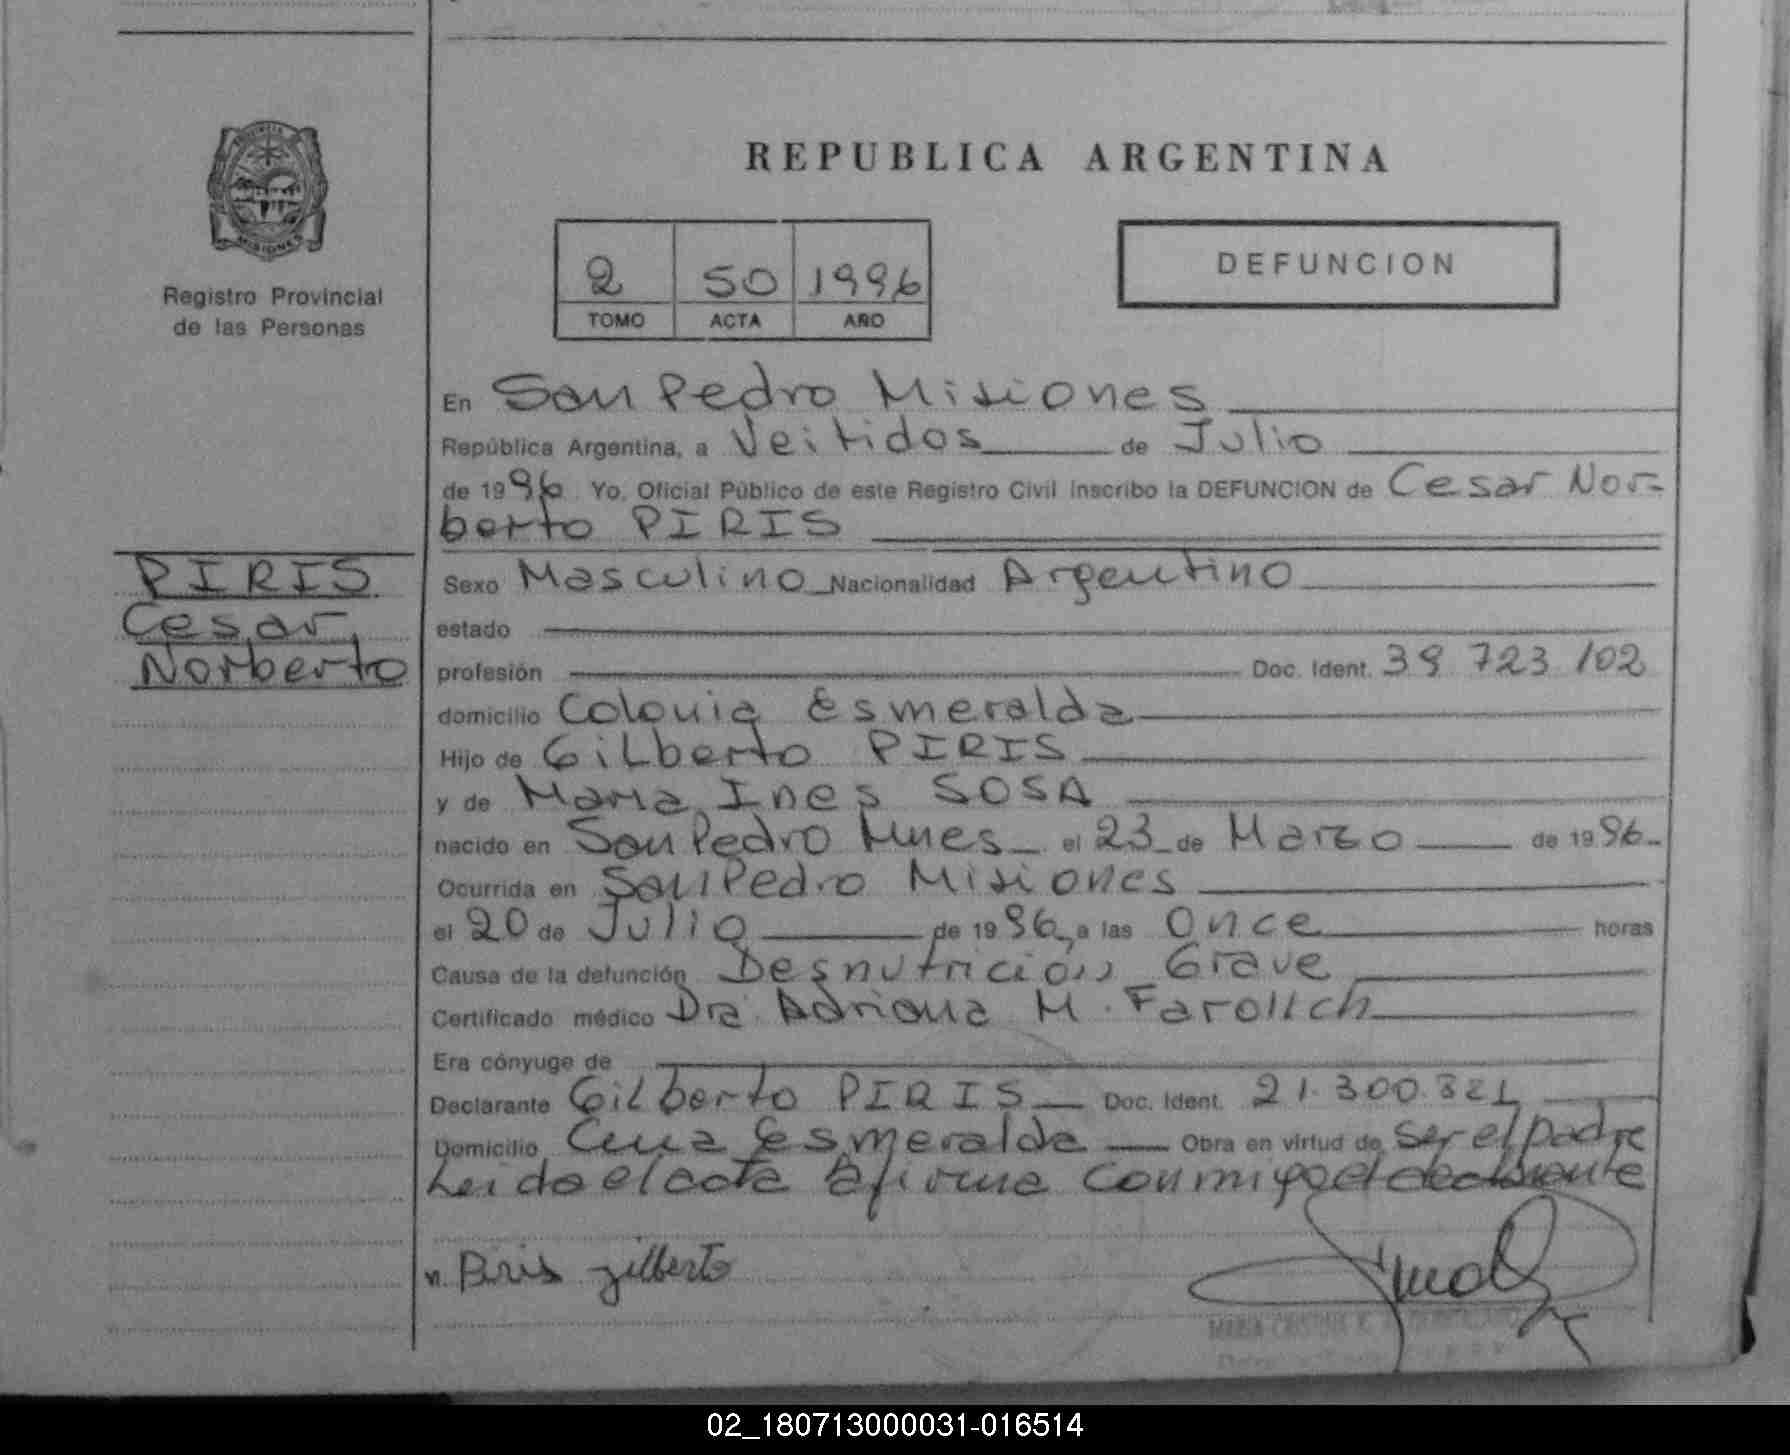 PROVINCIA
MISIONES
Registro Provincial
de las Personas
REPUBLICA ARGENTINA
2 50 1996
TOMO ACTA AÑO
DEFUNCION
En San Pedro Misiones
República Argentina, a Veitidos de Julio
de 1996 Yo, Oficial Público de este Registro Civil inscribo la DEFUNCION de Cesar Nor-
berto PIRIS
PIRIS
Cesar
Norberto
Sexo Masculino Nacionalidad Argentino
estado
profesión Doc. Ident. 39 723 102
domicilio Colonia Esmeralda
Hijo de Gilberto PIRIS
y de Maria Ines SOSA
nacido en San Pedro Mnes el 23 de Marzo de 1996
Ocurrida en San Pedro Misiones
el 20 de Julio de 1996, a las Once horas
Causa de la defunción Desnutrición Grave
Certificado médico Dra. Adriana M. Farolich
Era cónyuge de
Declarante Gilberto PIRIS Doc. Ident. 21.300.321
Domicilio Cnia Esmeralda Obra en virtud de ser el padre
Leido el acta firma conmigo el declarante
Piris gilberto
MARIA CRISTINA
02_180713000031-016514